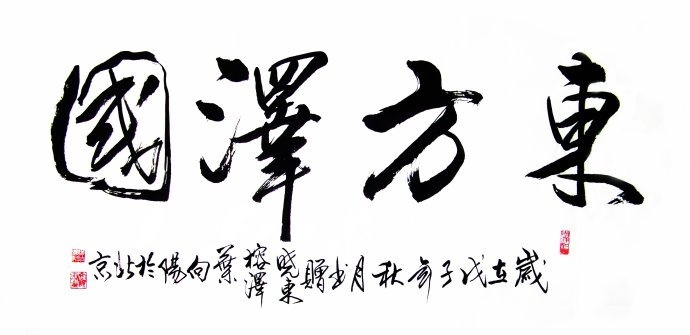 東方澤國
歲在戊子年秋月书赠晓東榕澤葉向陽於北京